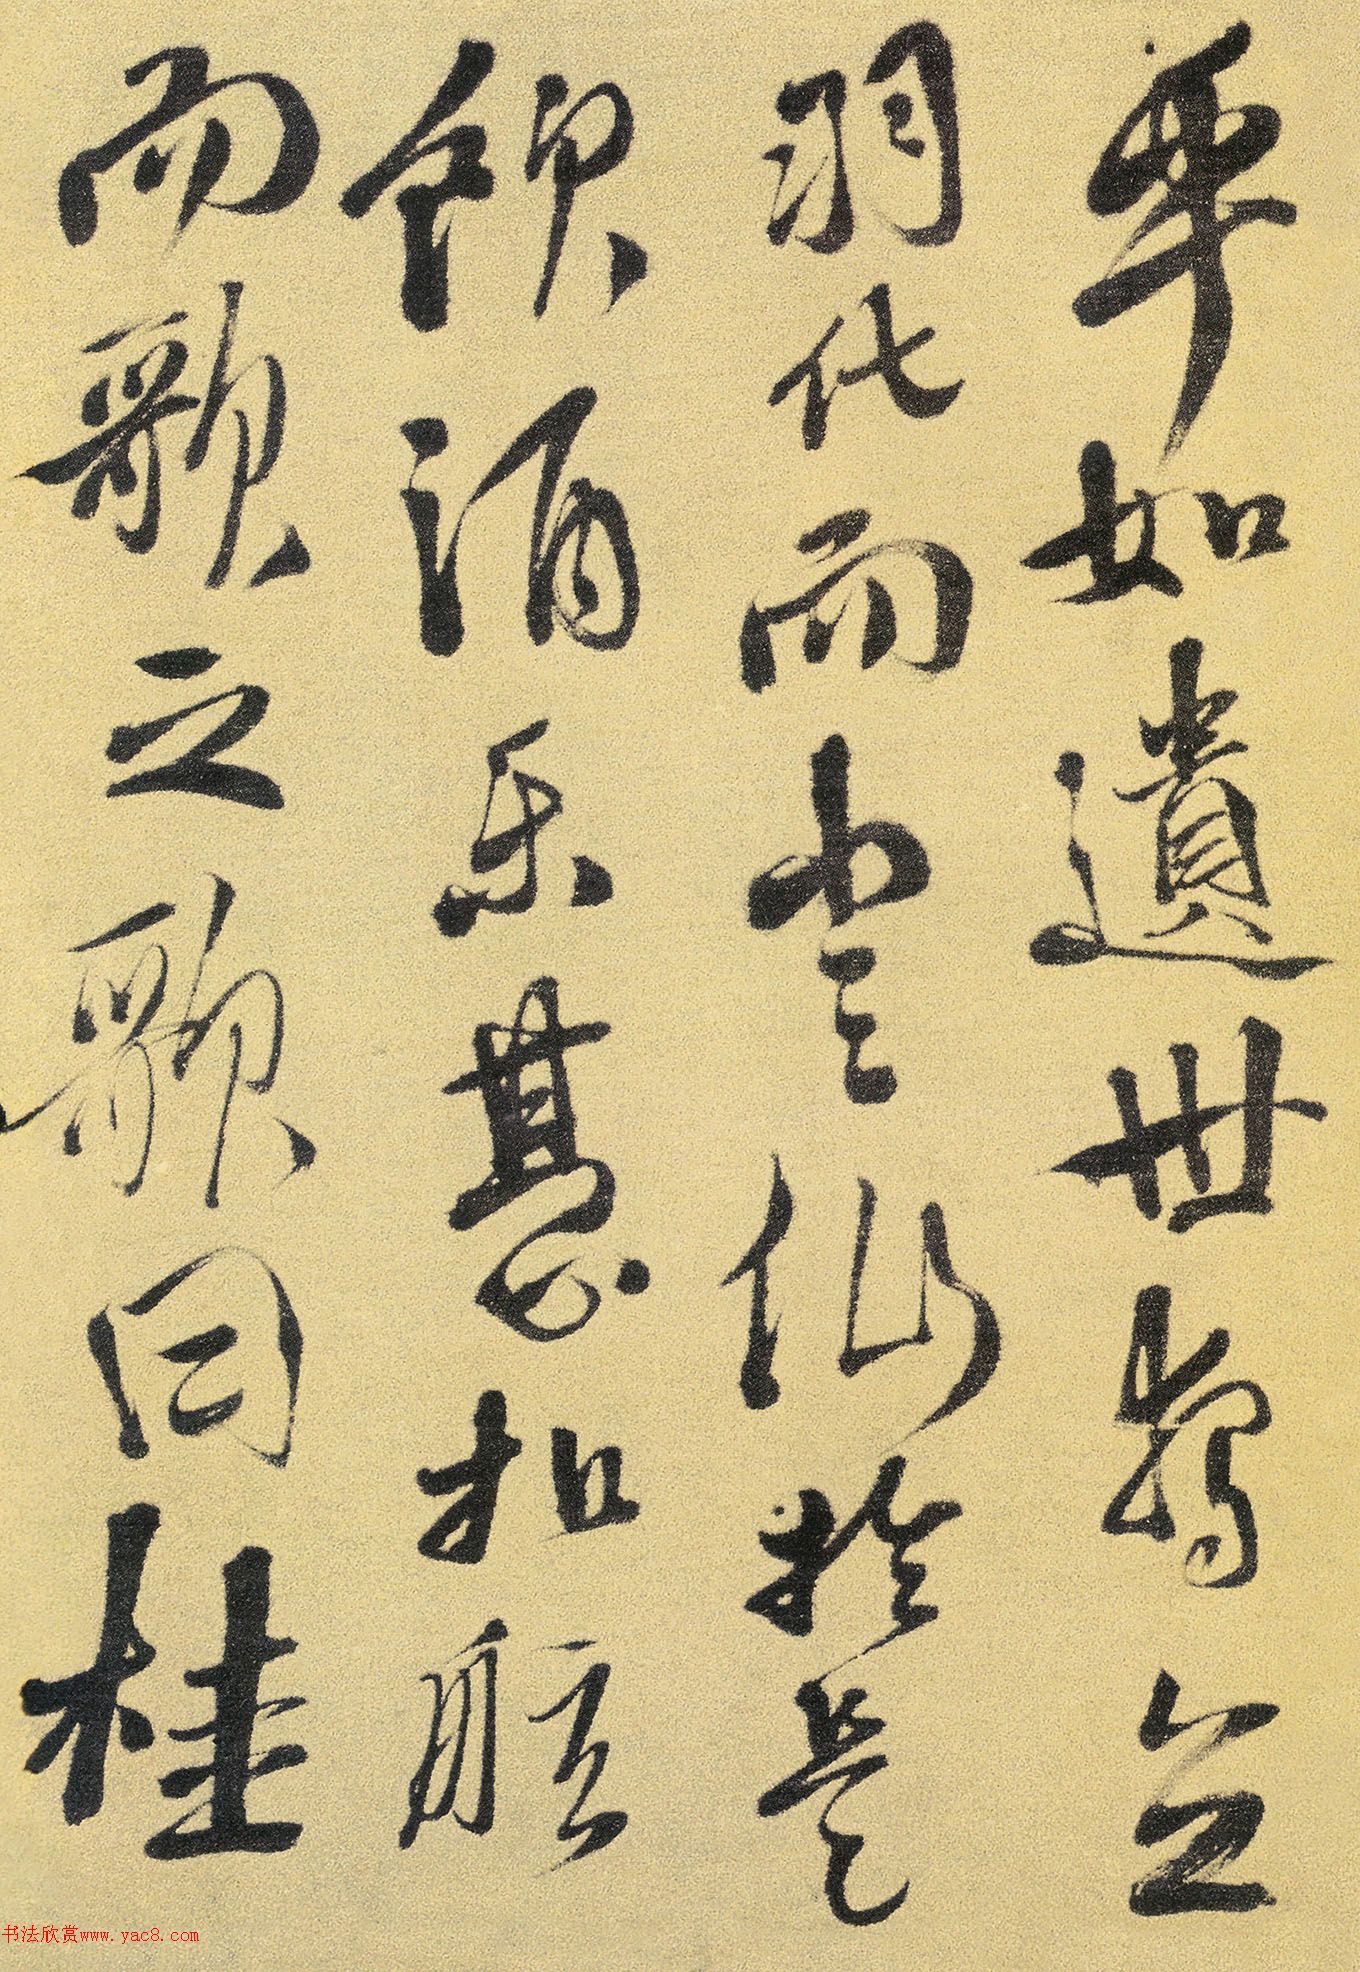 乎如遺世獨立
羽化而登仙於是
飲酒樂甚扣舷
而歌之歌曰桂
书法欣赏www.yac8.com